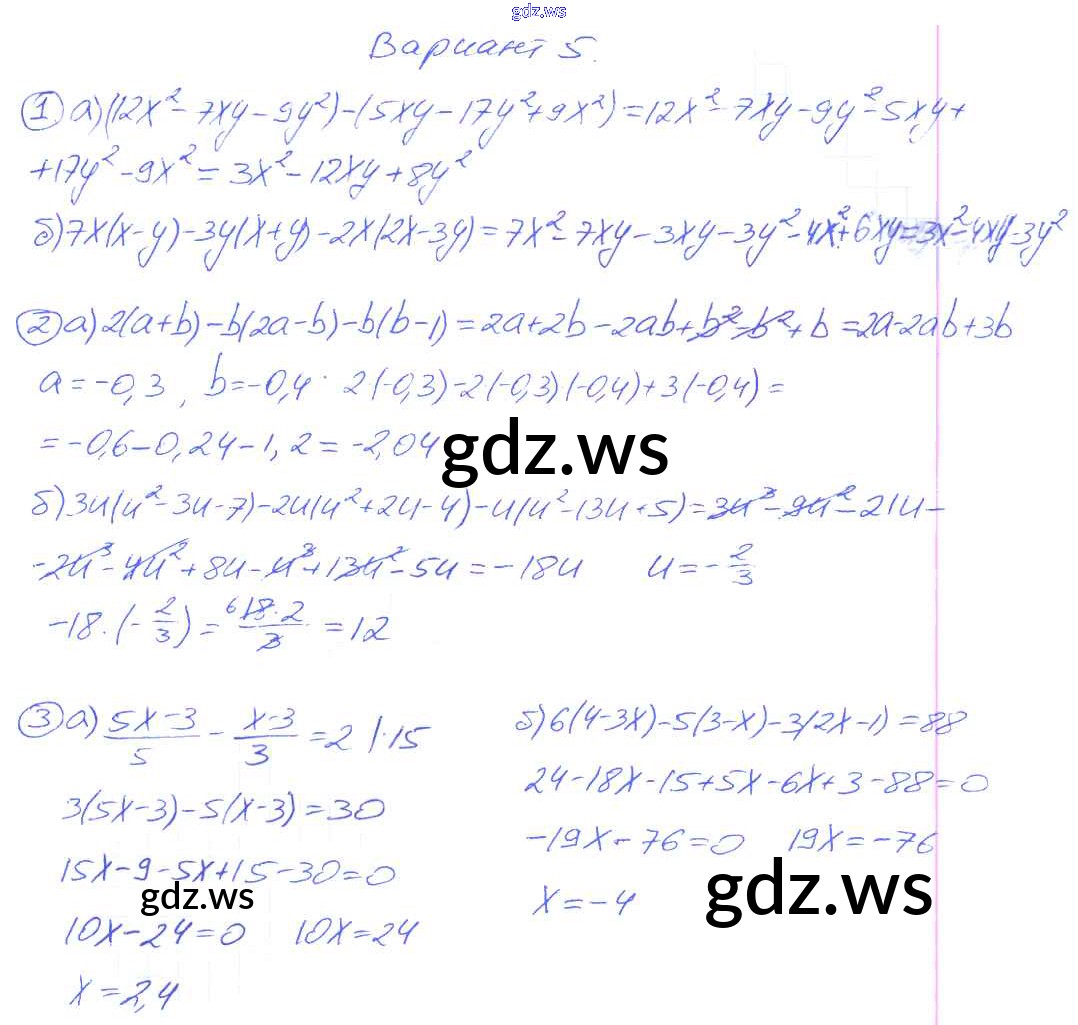 gdz.ws
Вариант 5.
① а) (12x² - 7xy - 9y²) - (5xy - 17y² + 9x²) = 12x² - 7xy - 9y² - 5xy +
+ 17y² - 9x² = 3x² - 12xy + 8y²
б) 7x(x - y) - 3y(x + y) - 2x(2x - 3y) = 7x² - 7xy - 3xy - 3y² - 4x² + 6xy = 3x² - 4xy - 3y²
② а) 2(a + b) - b(2a - b) - b(b - 1) = 2a + 2b - 2ab + b² - b² + b = 2a - 2ab + 3b
a = -0,3, b = -0,4 · 2(-0,3) - 2(-0,3)(-0,4) + 3(-0,4) =
= -0,6 - 0,24 - 1,2 = -2,04
gdz.ws
б) 3u(u² - 3u - 7) - 2u(u² + 2u - 4) - u(u² - 13u + 5) = 3u³ - 9u² - 21u -
- 2u³ - 4u² + 8u - u³ + 13u² - 5u = -18u u = -2/3
-18 · (-2/3) = 6 18·2/3 = 12
③ а) (5x - 3)/5 - (x - 3)/3 = 2 | · 15
3(5x - 3) - 5(x - 3) = 30
15x - 9 - 5x + 15 - 30 = 0
gdz.ws
10x - 24 = 0 10x = 24
x = 2,4
б) 6(4 - 3x) - 5(3 - x) - 3(2x - 1) = 88
24 - 18x - 15 + 5x - 6x + 3 - 88 = 0
-19x - 76 = 0 19x = -76
x = -4
gdz.ws